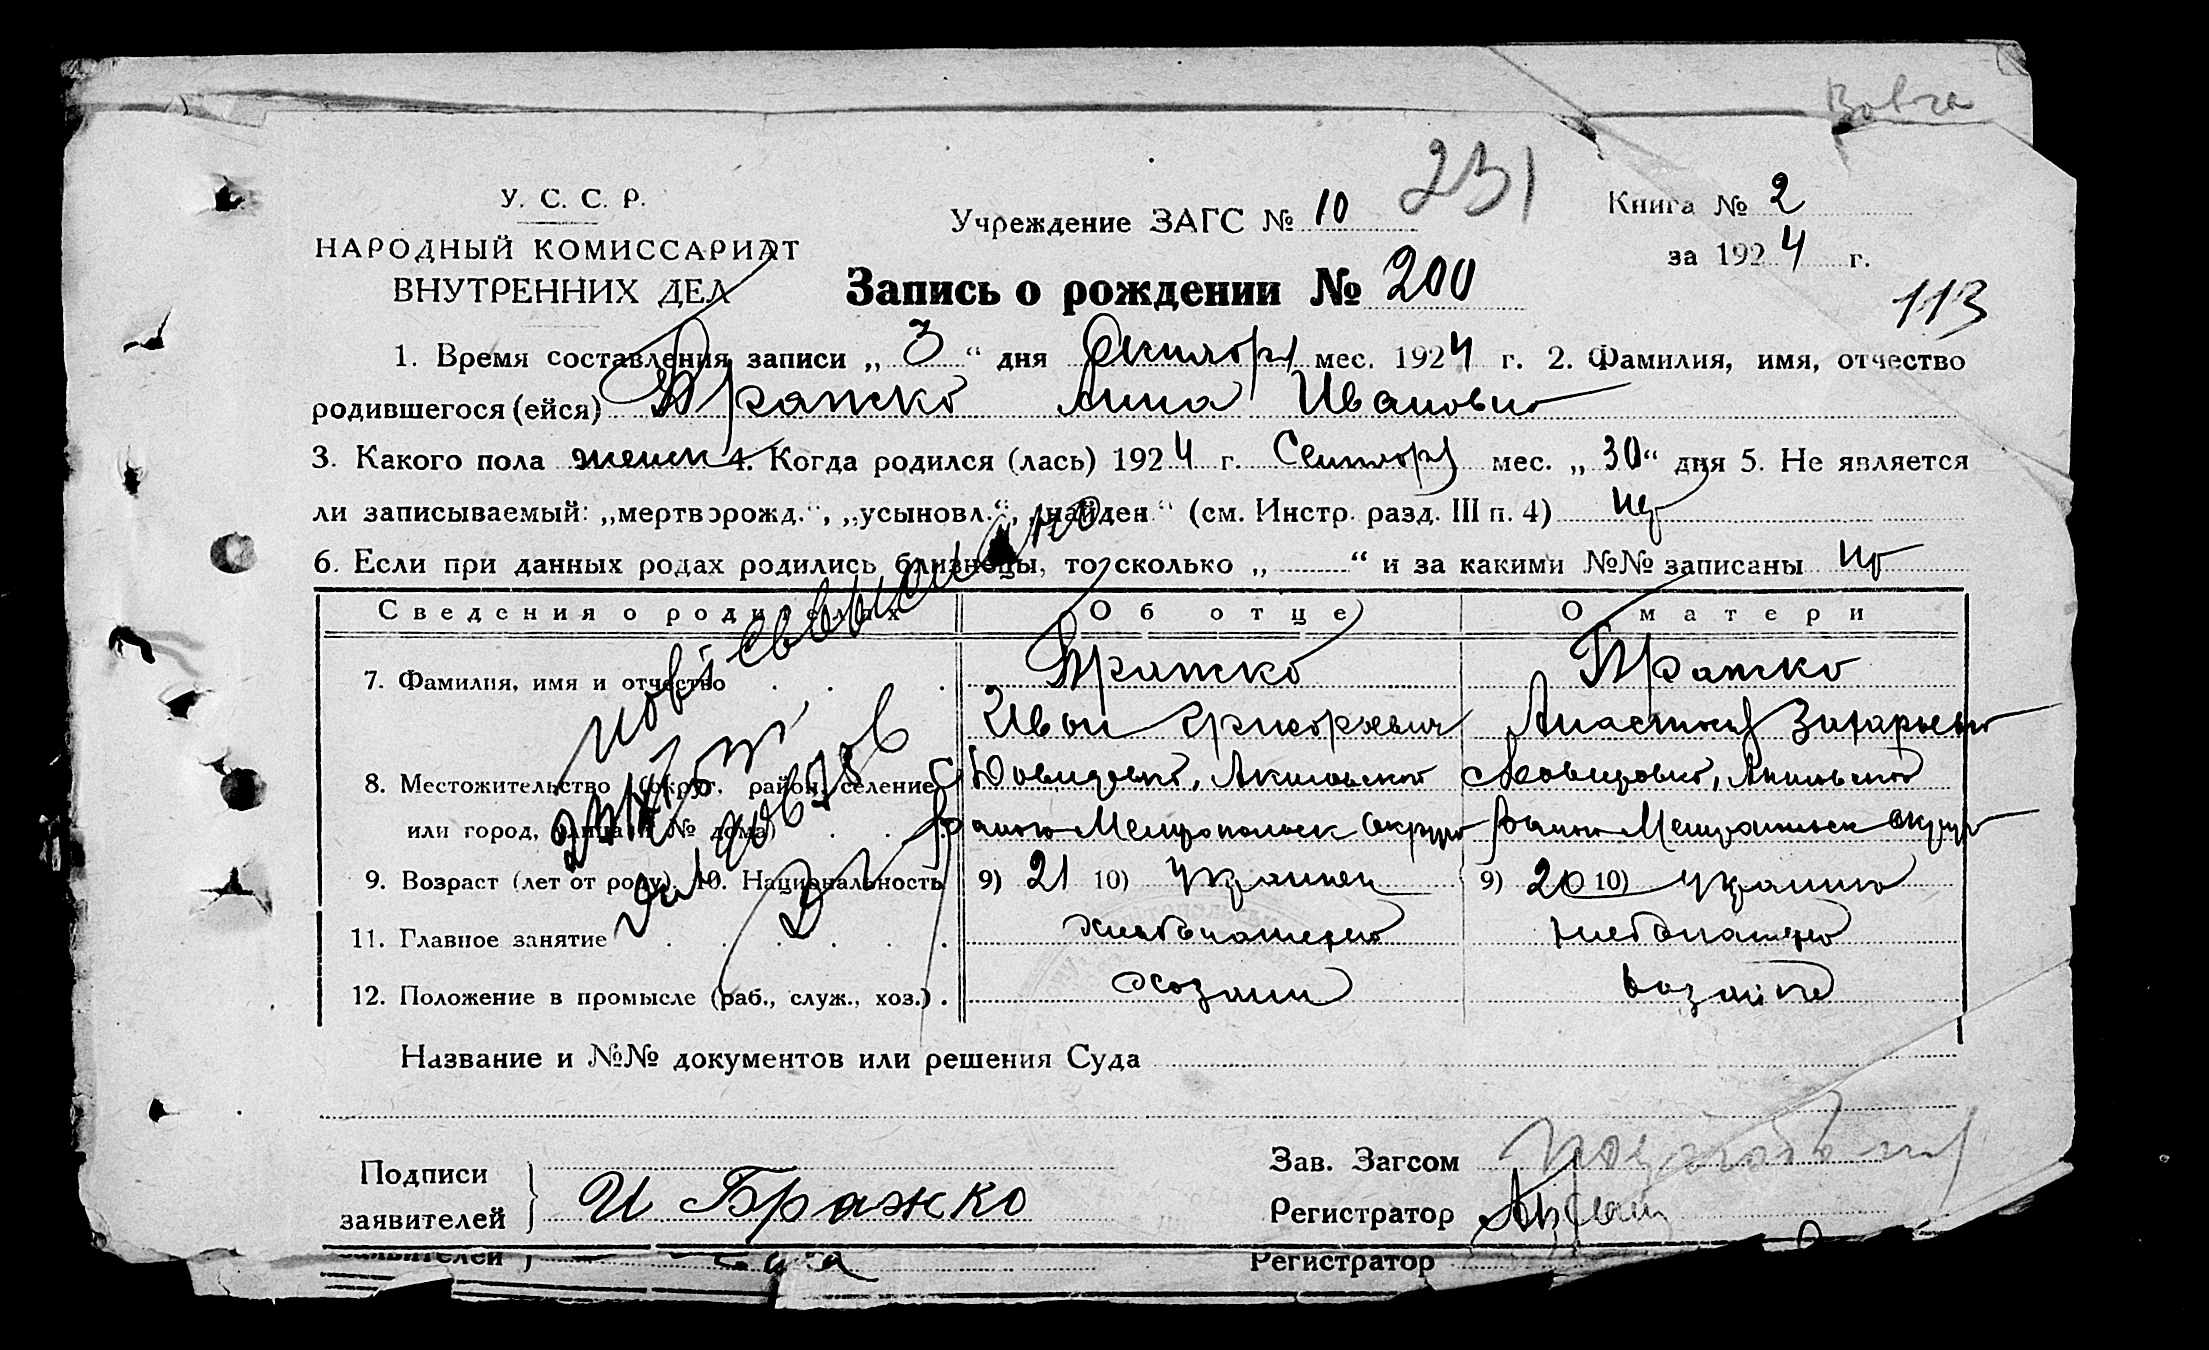 У. С. С. Р.
НАРОДНЫЙ КОМИССАРИАТ
ВНУТРЕННИХ ДЕЛ
Учреждение ЗАГС № 10
231
Книга № 2
за 1924 г.
Запись о рождении № 200
113
1. Время составления записи „ 3 “ дня Октября мес. 1924 г. 2. Фамилия, имя, отчество
родившегося (ейся) Бражко Анна Ивановна
3. Какого пола женск 4. Когда родился (лась) 1924 г. Сентября мес. „ 30 “ дня 5. Не является
ли записываемый: „мертворожд.“, „усыновл.“, „найден“ (см. Инстр. разд. III п. 4) нет
6. Если при данных родах родились близнецы, то сколько „ “ и за какими №№ записаны нет
Сведения о родителях Об отце О матери
7. Фамилия, имя и отчество Бражко Бражко
Иван Григорьевич Анастасия Захарьевна
8. Местожительство (округ, район, селение Давидовка, Акимовского Давидовка, Акимовского
или город, улица и № дома) района Мелитопольск округа района Мелитопольск округа
9. Возраст (лет от роду) 10. Национальность 9) 21 10) Украинец 9) 20 10) украинка
11. Главное занятие хлебопашество хлебопашество
12. Положение в промысле (раб., служ., хоз.) хозяин хозяйка
Название и №№ документов или решения Суда
Подписи
заявителей
И Бражко
Зав. Загсом
Регистратор
заявителей
Регистратор